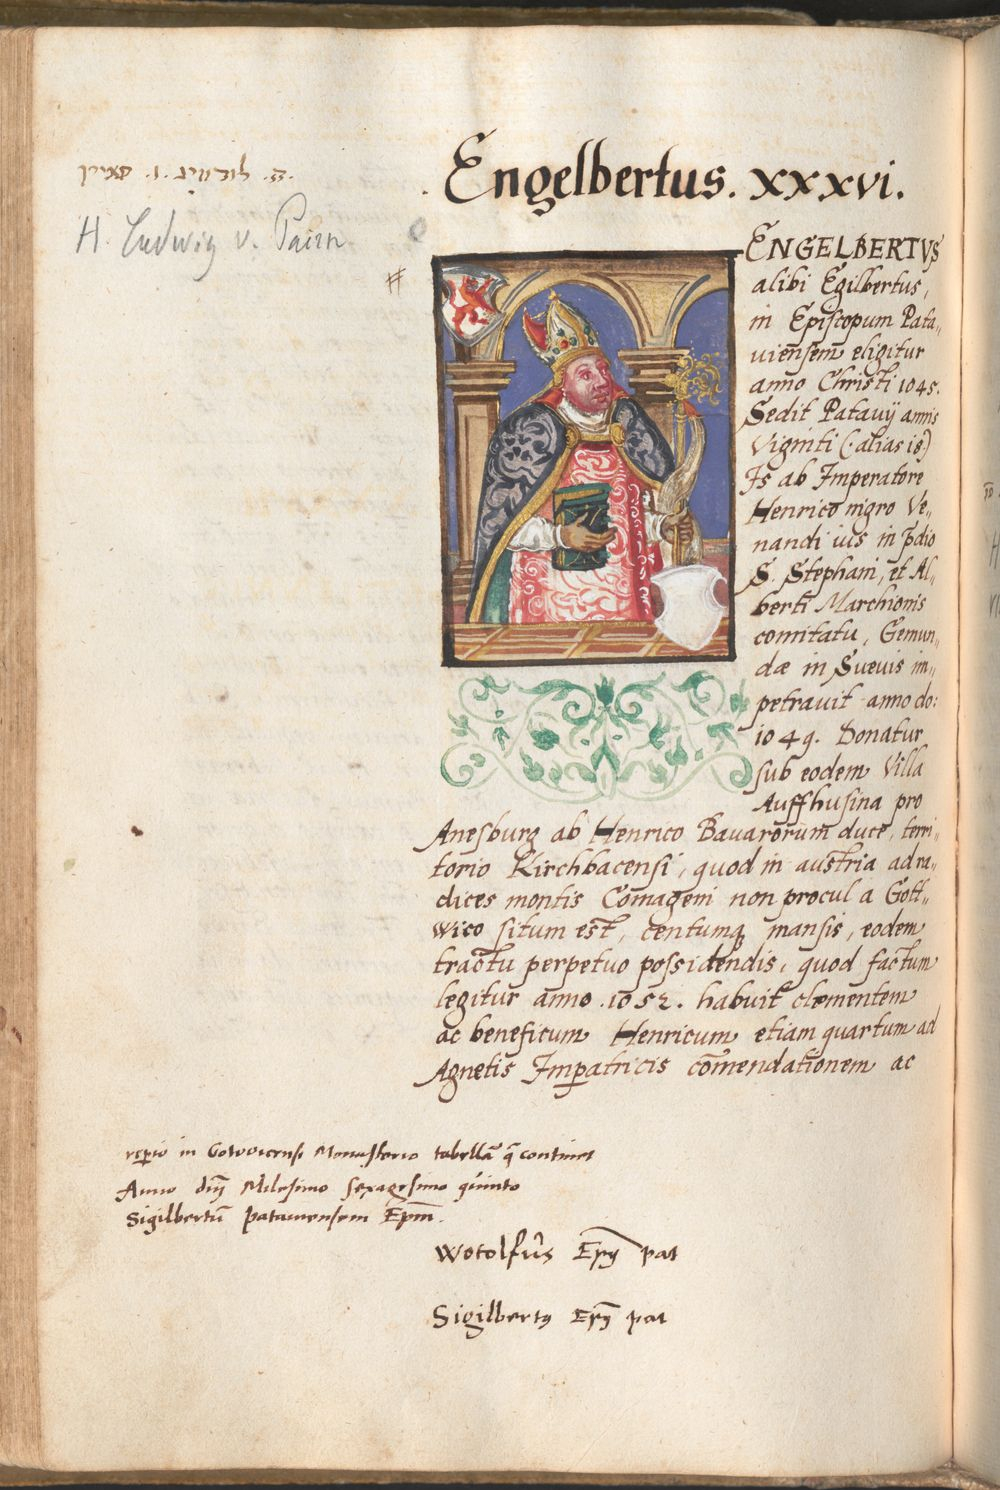 Engelbertus. xxxvi.
ה. לודוויג .ו. פאיין
H. Ludwig v. Pairn
ENGELBERTVS
alibi Egilbertus,
in Episcopum Pata„
uiensem eligitur
anno Christi 1045.
Sedit Patauij annis
Viginti (: alias 18)
Is ab Imperatore
Henrico nigro Ve„
nandi ius in p̄dio
S. Stephani, et Al„
berti Marchionis
comitatu, Gemun„
dæ in Sueuis im„
petrauit anno do:
1049. Donatur
sub eodem Villa
Auffhusina pro
Anesburg ab Henrico Bauarorum duce, terri„
torio Kirchbacensi, quod in austria ad ra„
dices montis Comageni non procul a Gott„
wico situm est, centumq; mansis, eodem
tractu perpetuo possidendis, quod factum
legitur anno .1052. habuit clementem
ac beneficum Henricum etiam quartum ad
Agnetis Impatricis cōmendationem ac
in Gotwicensi Monasterio tabellā q̄ continet
Anno dnj Milesimo sexagesimo quinto
Sigilbertū patauiensem Epm̄.
Wotolfus Ep̄s pat
Sigilbertus Ep̄s pat